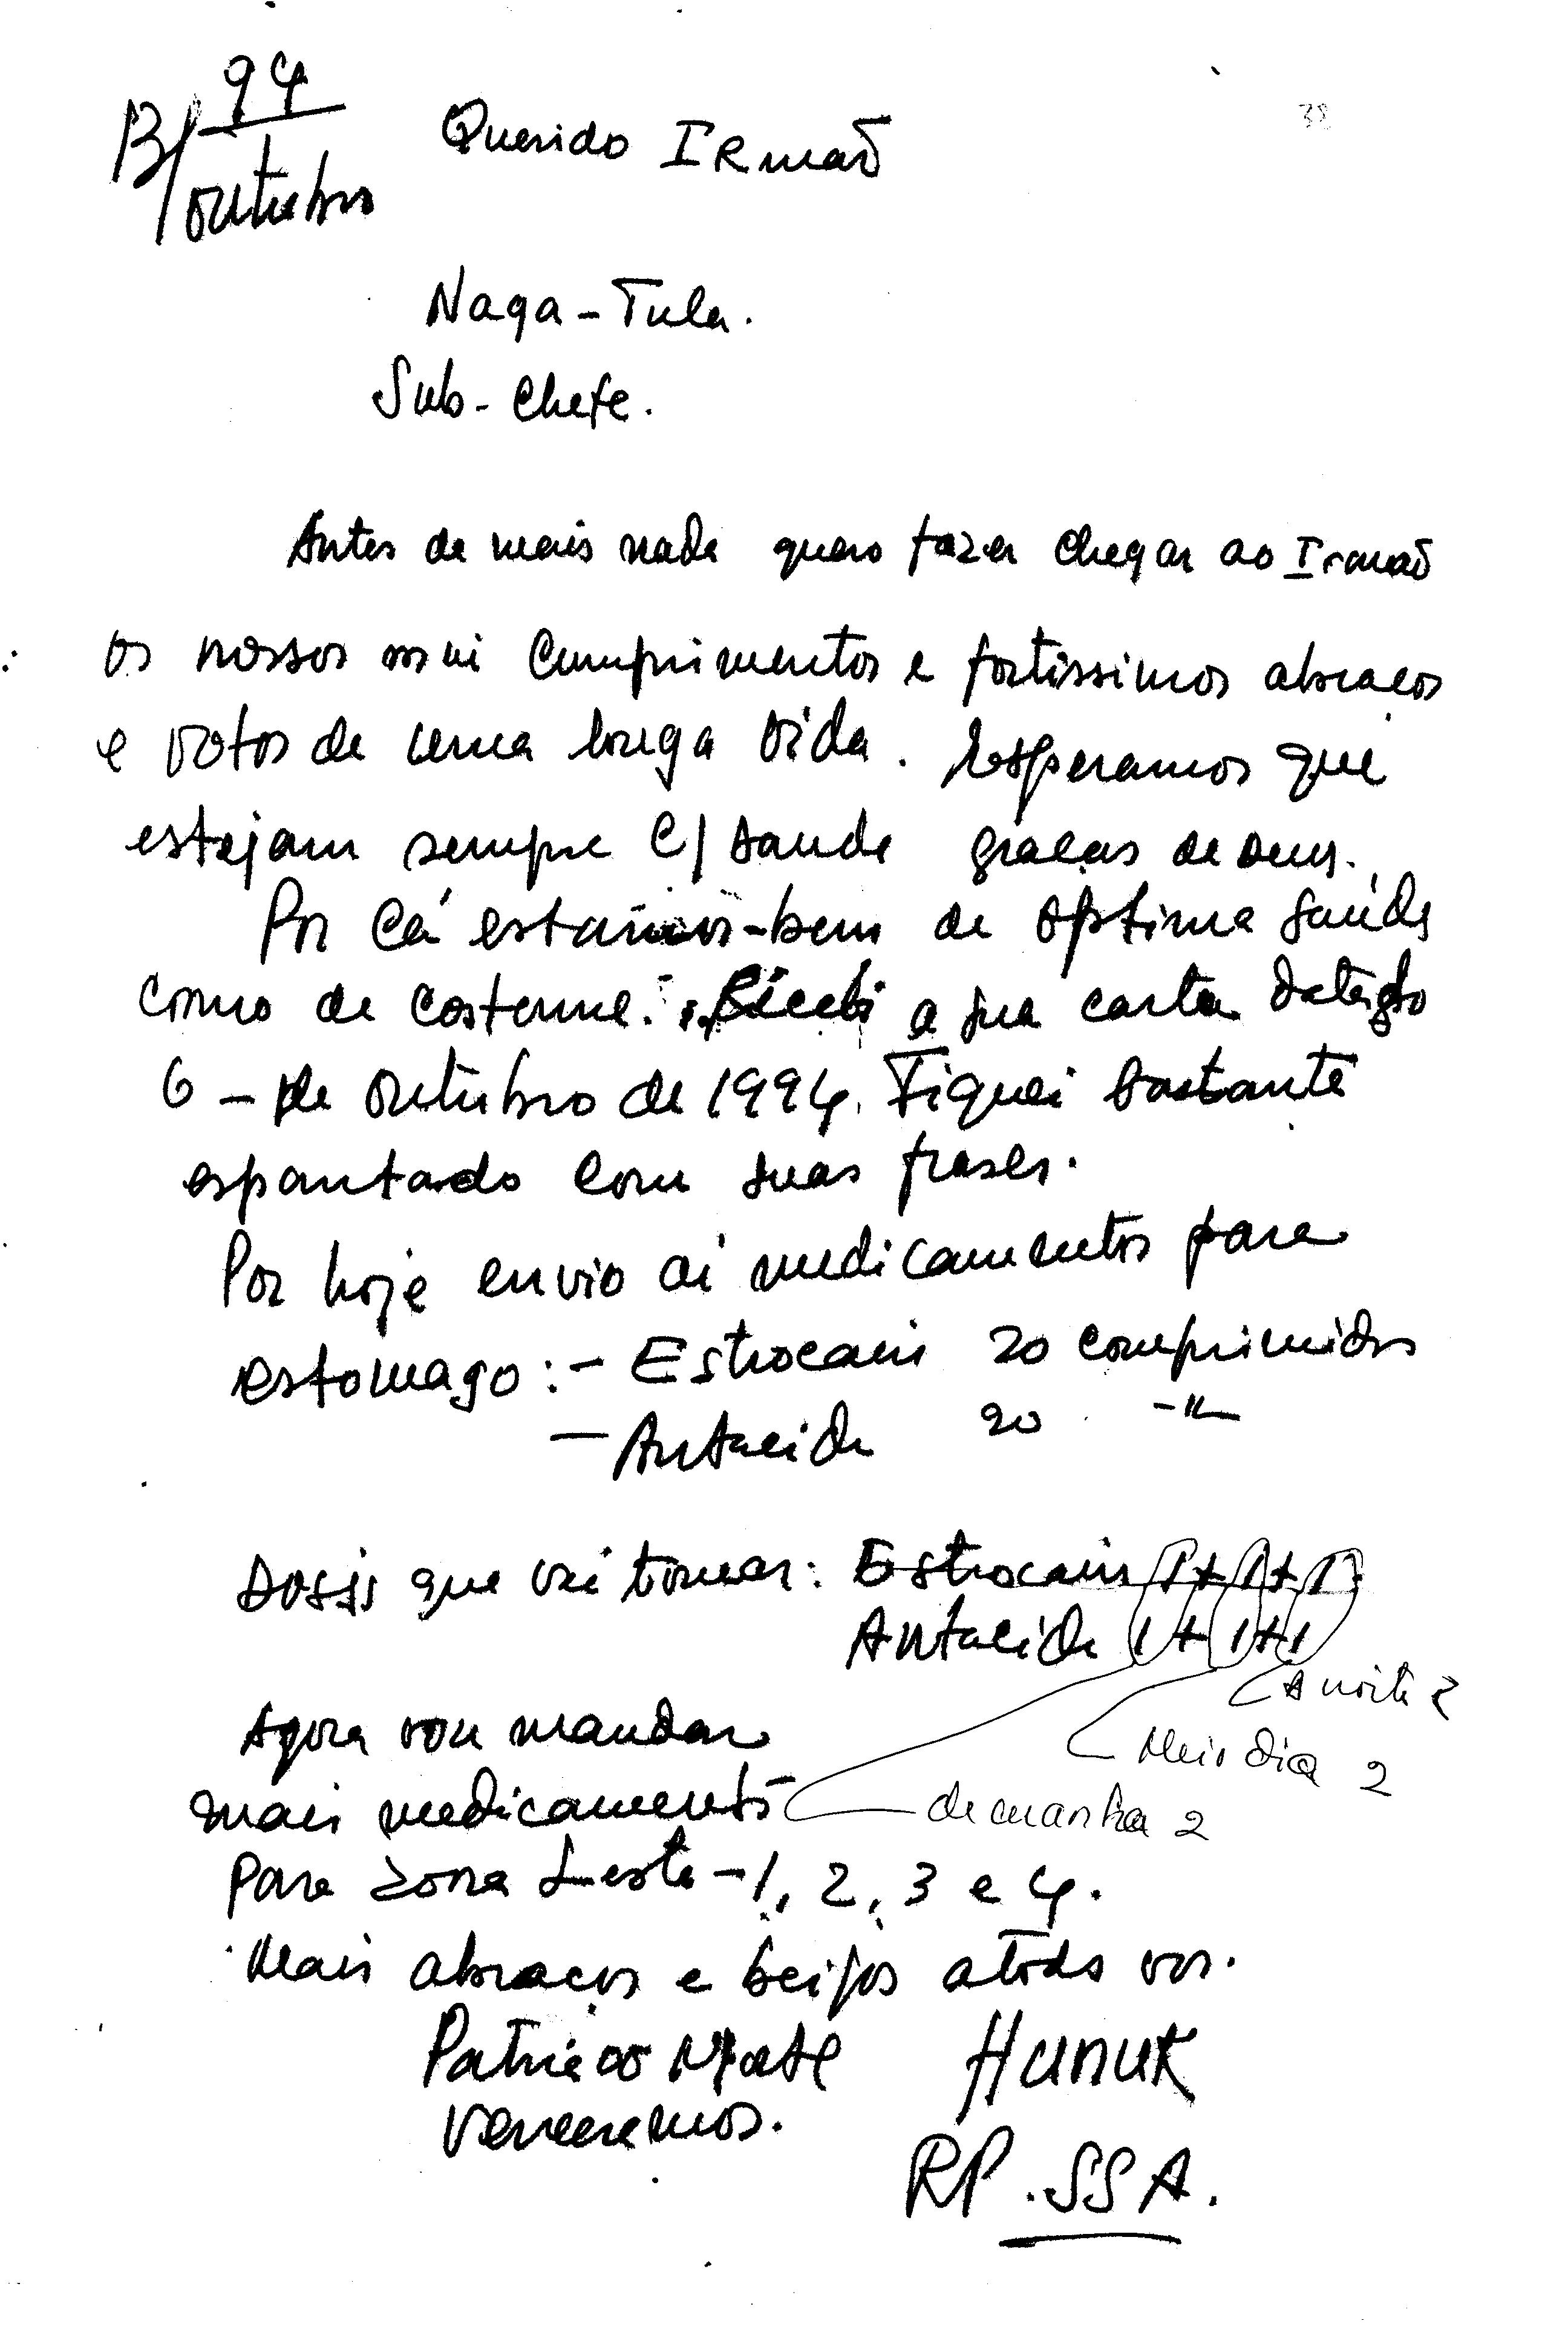 94
B/
outubro
Querido IRmão
38
Naga-Tula.
Sub-Chefe.
Antes de mais nada quero fazer chegar ao Irmão
os nossos mui cumprimentos e fortissimos abraços
e votos de uma longa vida. Esperamos que
estejam sempre c/ saude graças de Deus.
Por cá estamos-bem de optima saúde
como de costume. Recebi a sua carta datado
6 - de outubro de 1994. Fiquei bastante
espantado com suas frases.
Por hoje envio aí medicamentos para
estomago:- Estrocain 20 comprimidos
- Antacide 20 -"-
Dosis que vai tomar: Estrocain 1+1+1
Antacide 1+1+1
A noite 2
Meio dia 2
de manha 2
Agora vou mandar
mais medicamentos
para zona Leste-1, 2, 3 e 4.
Mais abraços e beijos a todo vos.
Patria ou Morte
Venceremos.
Hunuk
RP.SSA.